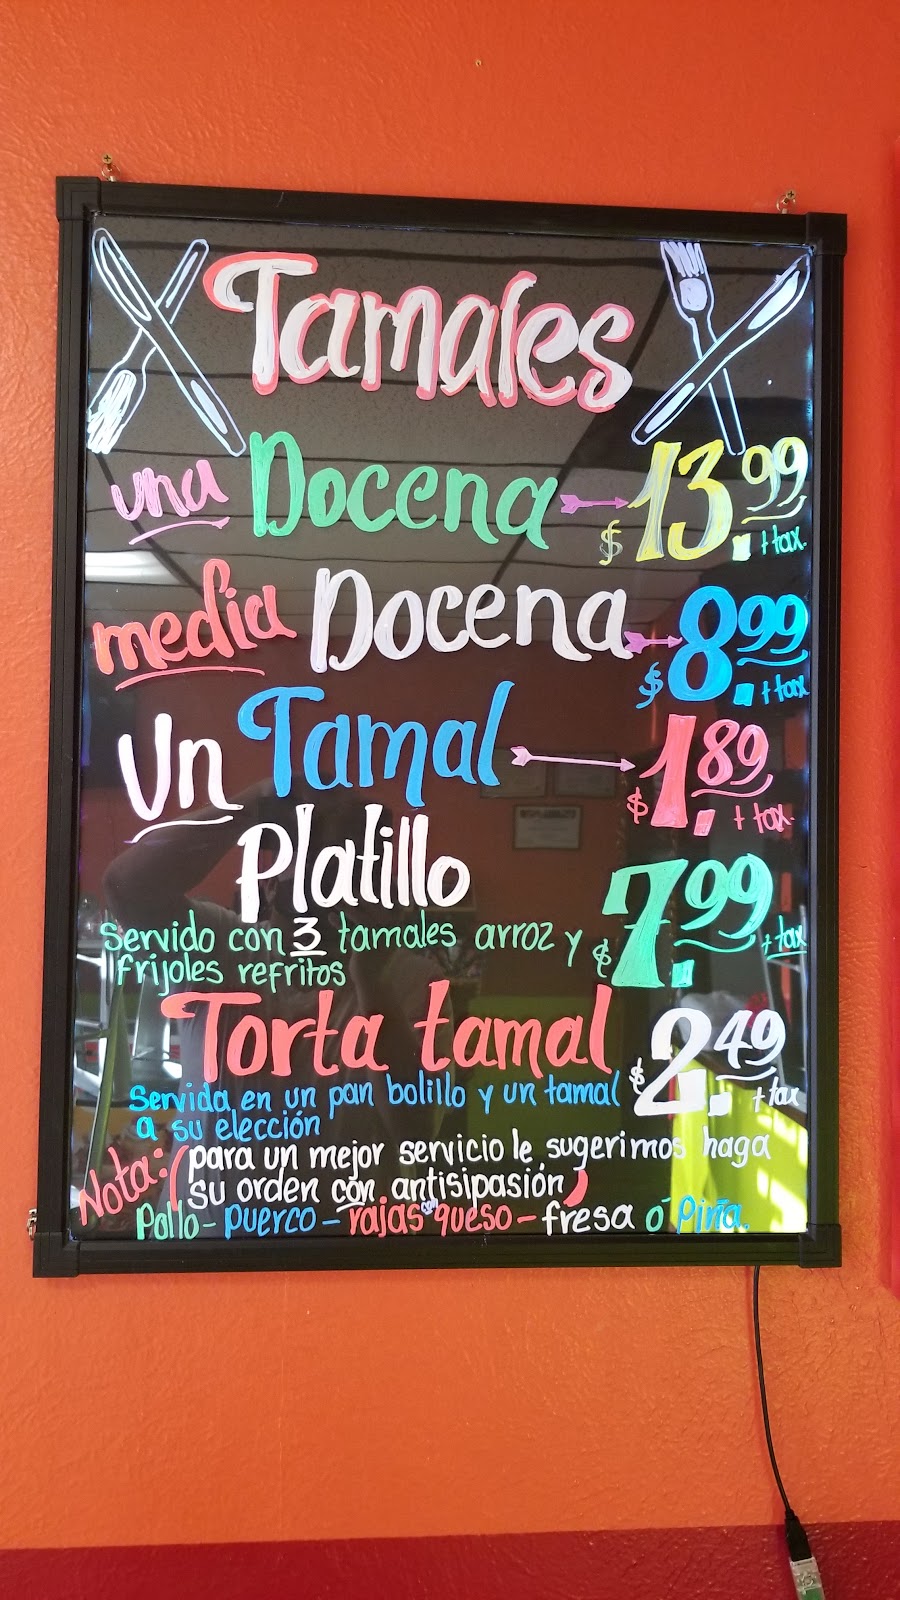 Tamales
una Docena $13.99 + tax.
media Docena $8.99 + tax
Un Tamal $1.89 + tax.
Platillo
servido con 3 tamales arroz y $7.99 + tax
frijoles refritos
Torta tamal $2.49 + tax
Servida en un pan bolillo y un tamal
a su elección
Nota: (para un mejor servicio le sugerimos haga
su orden con antisipasión)
Pollo - puerco - rajas con queso - fresa ó Piña.